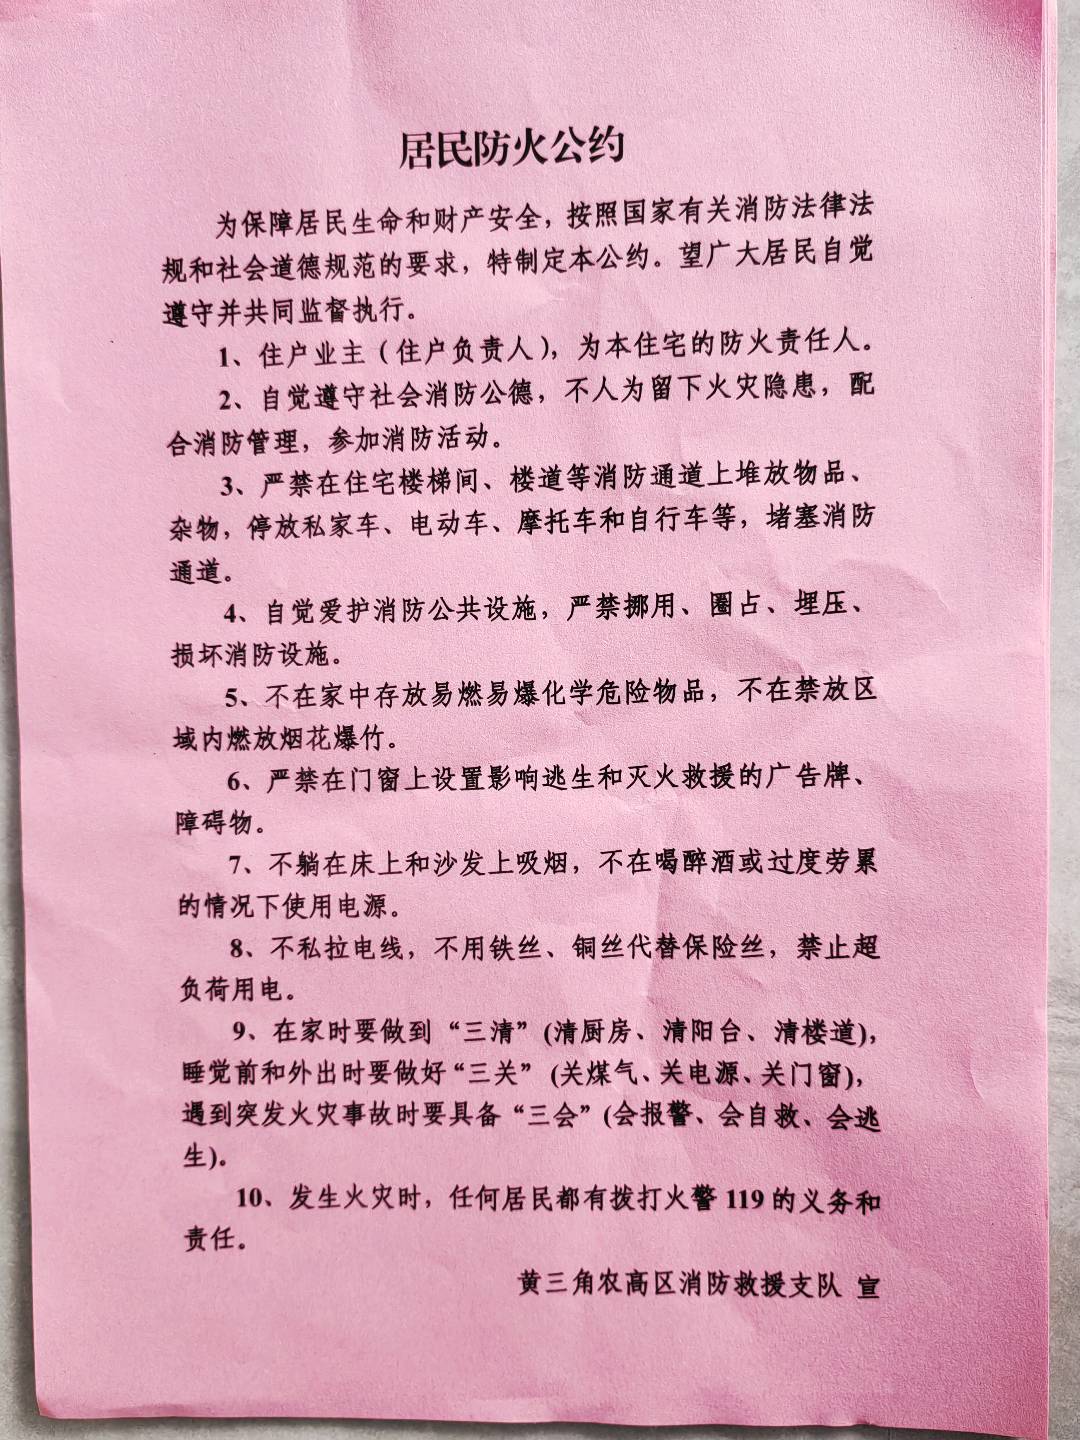 居民防火公约
为保障居民生命和财产安全，按照国家有关消防法律法
规和社会道德规范的要求，特制定本公约。望广大居民自觉
遵守并共同监督执行。
1、住户业主（住户负责人），为本住宅的防火责任人。
2、自觉遵守社会消防公德，不人为留下火灾隐患，配
合消防管理，参加消防活动。
3、严禁在住宅楼梯间、楼道等消防通道上堆放物品、
杂物，停放私家车、电动车、摩托车和自行车等，堵塞消防
通道。
4、自觉爱护消防公共设施，严禁挪用、圈占、埋压、
损坏消防设施。
5、不在家中存放易燃易爆化学危险物品，不在禁放区
域内燃放烟花爆竹。
6、严禁在门窗上设置影响逃生和灭火救援的广告牌、
障碍物。
7、不躺在床上和沙发上吸烟，不在喝醉酒或过度劳累
的情况下使用电源。
8、不私拉电线，不用铁丝、铜丝代替保险丝，禁止超
负荷用电。
9、在家时要做到“三清”(清厨房、清阳台、清楼道)，
睡觉前和外出时要做好“三关”(关煤气、关电源、关门窗)，
遇到突发火灾事故时要具备“三会”(会报警、会自救、会逃
生)。
10、发生火灾时，任何居民都有拨打火警119的义务和
责任。
黄三角农高区消防救援支队 宣